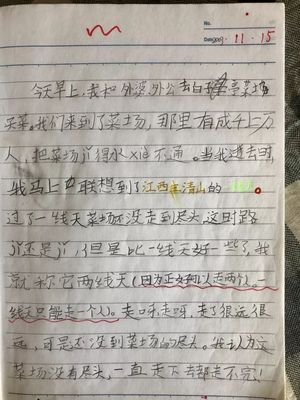 No.
Date 11·15
今天早上,我和外婆、外公去白亭菜场
买菜。我们来到了菜场,那里有成千上万
人,把菜场jǐ得水xiè不通。当我进去时,
我马上联想到了江西清山的
过了一线天菜场还没走到尽头,这时路
jǐ还是jǐ,但是比一线天好一些了,我
就称它两线天(因为正好可以走两个人。一
线天只能走一个人)。走呀走呀,走了很远很
远,可是还没到菜场的尽头。我认为这
菜场没有尽头,一直走下去都走不完!